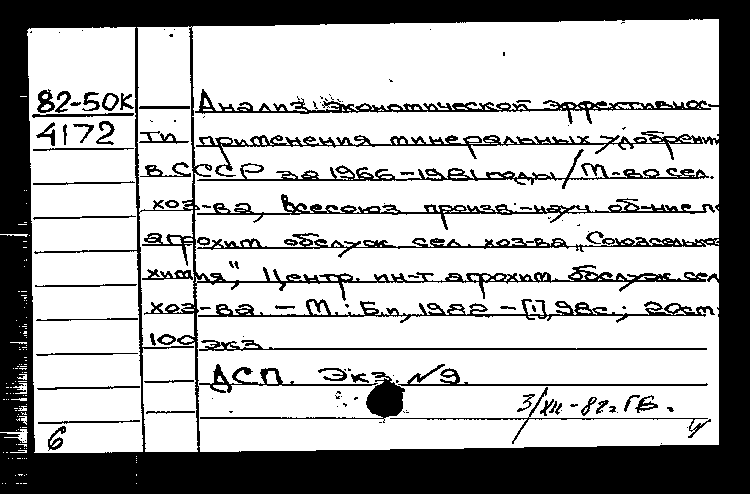 82-50К Анализ экономической эффективнос-
4172 ти применения минеральных удобрений
в СССР за 1966-1981 годы / М-во сел.
хоз-ва, Всесоюз. произв.-науч. об-ние по
агрохим. обслуж. сел. хоз-ва „Союзсельхоз-
химия", Центр. ин-т агрохим. обслуж. сел.
хоз-ва. - М.: Б.и, 1982 - [1], 98с.; 20см.
100 экз.
ДСП. Экз. №9.
3/XII-82г. ГБ.
6